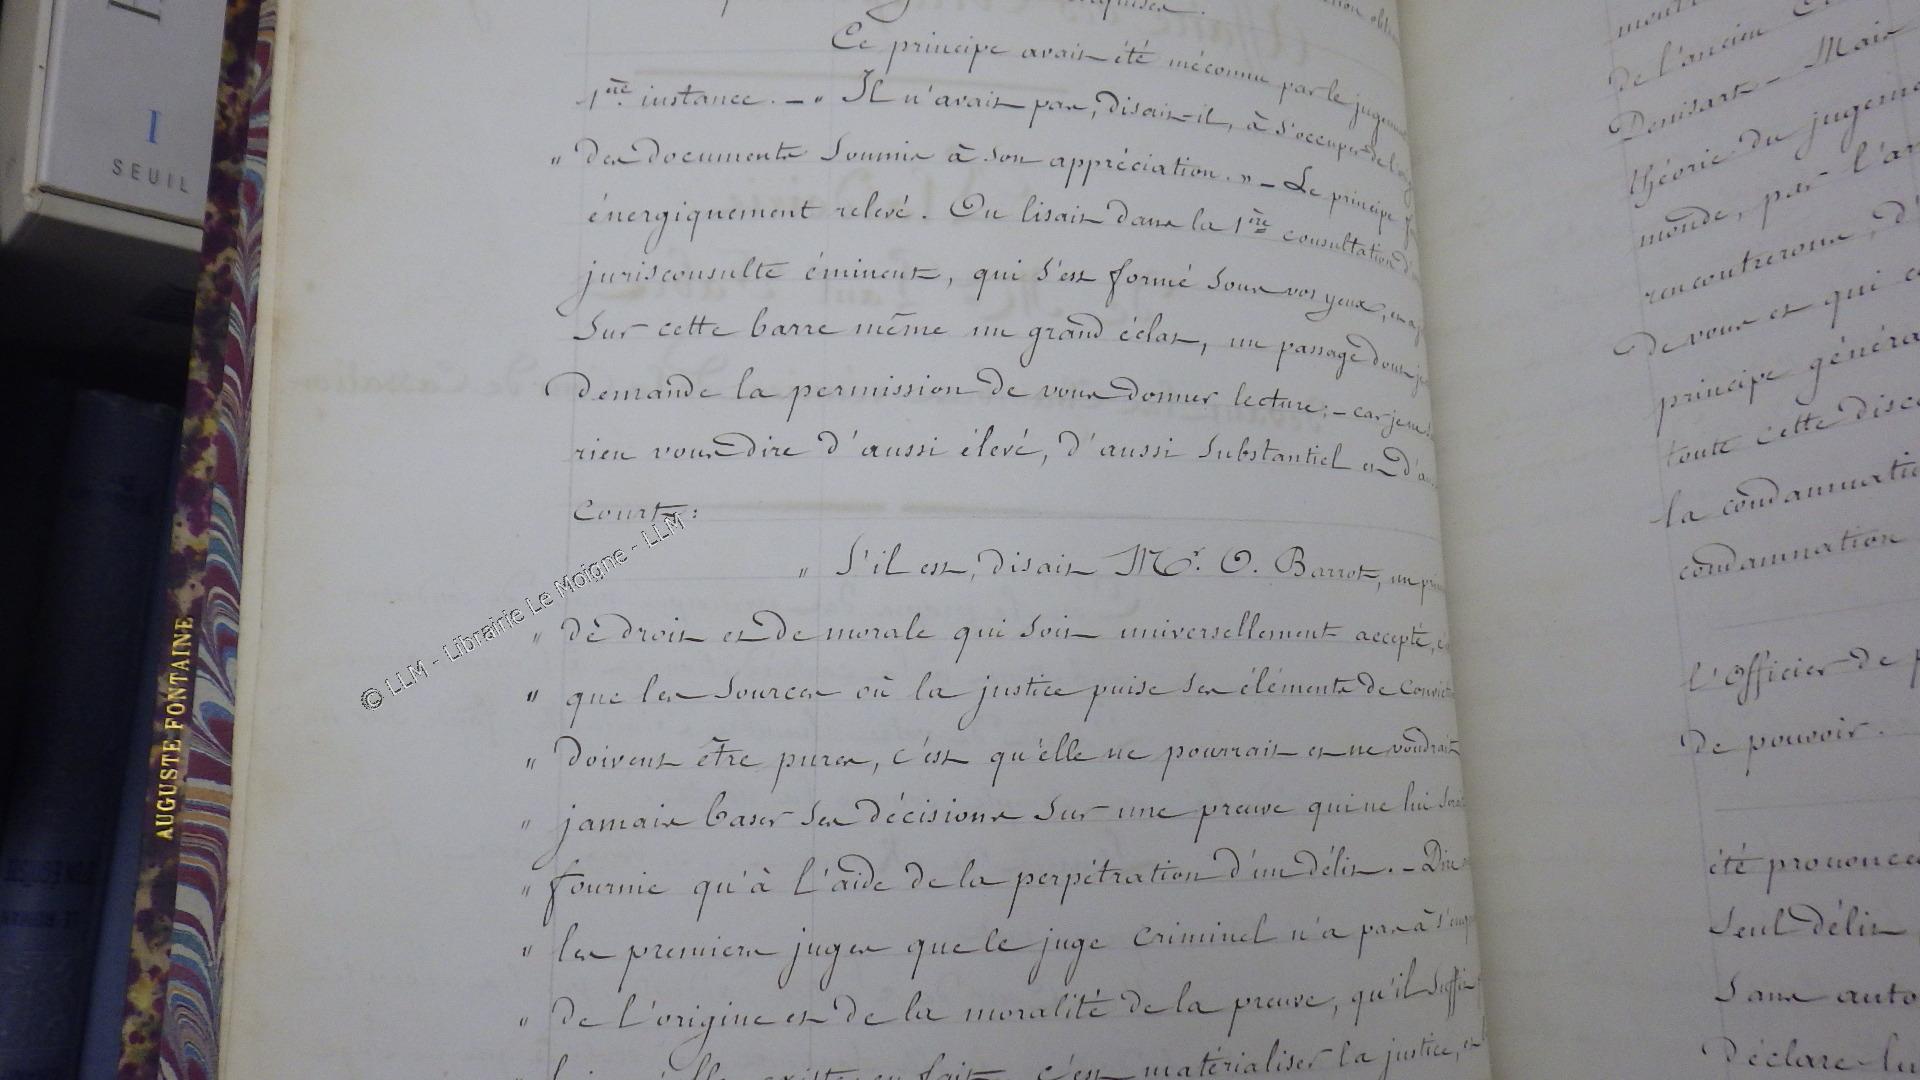 I
SEUIL
AUGUSTE FONTAINE
© LLM - Librairie Le Moigne - LLM
Ce principe avait été méconnu par le
1ère instance. — " Il n'avait pas, disait-il, à s'occuper de
" des documents soumis à son appréciation. " — Le principe
énergiquement relevé. On lisait dans la 1ère consultation
jurisconsulte éminent, qui s'est formé sous vos yeux,
sur cette barre même un grand éclat, un passage dont
demande la permission de vous donner lecture; — car je
rien vous dire d'aussi élevé, d'aussi substantiel et
court :
" S'il est, disait Mr. O. Barrot, un
" de droit et de morale qui soit universellement accepté,
" que les sources où la justice puise ses éléments de
" doivent être pures, c'est qu'elle ne pourrait et ne voudrait
" jamais baser ses décisions sur une preuve qui ne lui
" fournie qu'à l'aide de la perpétration d'un délit. —
" les premiers juges que le juge criminel n'a pas à
" de l'origine et de la moralité de la preuve, qu'il suffit
existe en fait, c'est matérialiser la justice,
de l'ancien
Denisart — Mais
théorie du
monde, par
rencontrerons,
de vous et qui
principe
toute cette
la condamnation
condamnation
l'Officier de
de pouvoir.
été
seul délit
sans